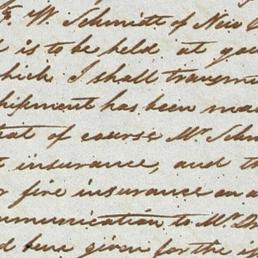 W. Schmidt of New
is to be held at you
which I shall transm
shipment has been ma
that of course Mr Schm
insurance, and th
fire insurance on a
ommunication to Mr D
have given for the